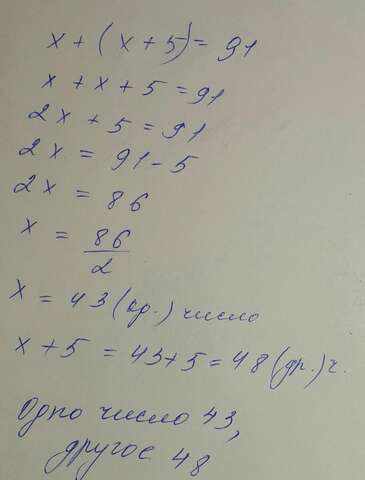 x + (x + 5) = 91
x + x + 5 = 91
2x + 5 = 91
2x = 91 - 5
2x = 86
x = 86/2
x = 43 (од.) число
x + 5 = 43 + 5 = 48 (др.) ч.
Одно число 43,
другое 48